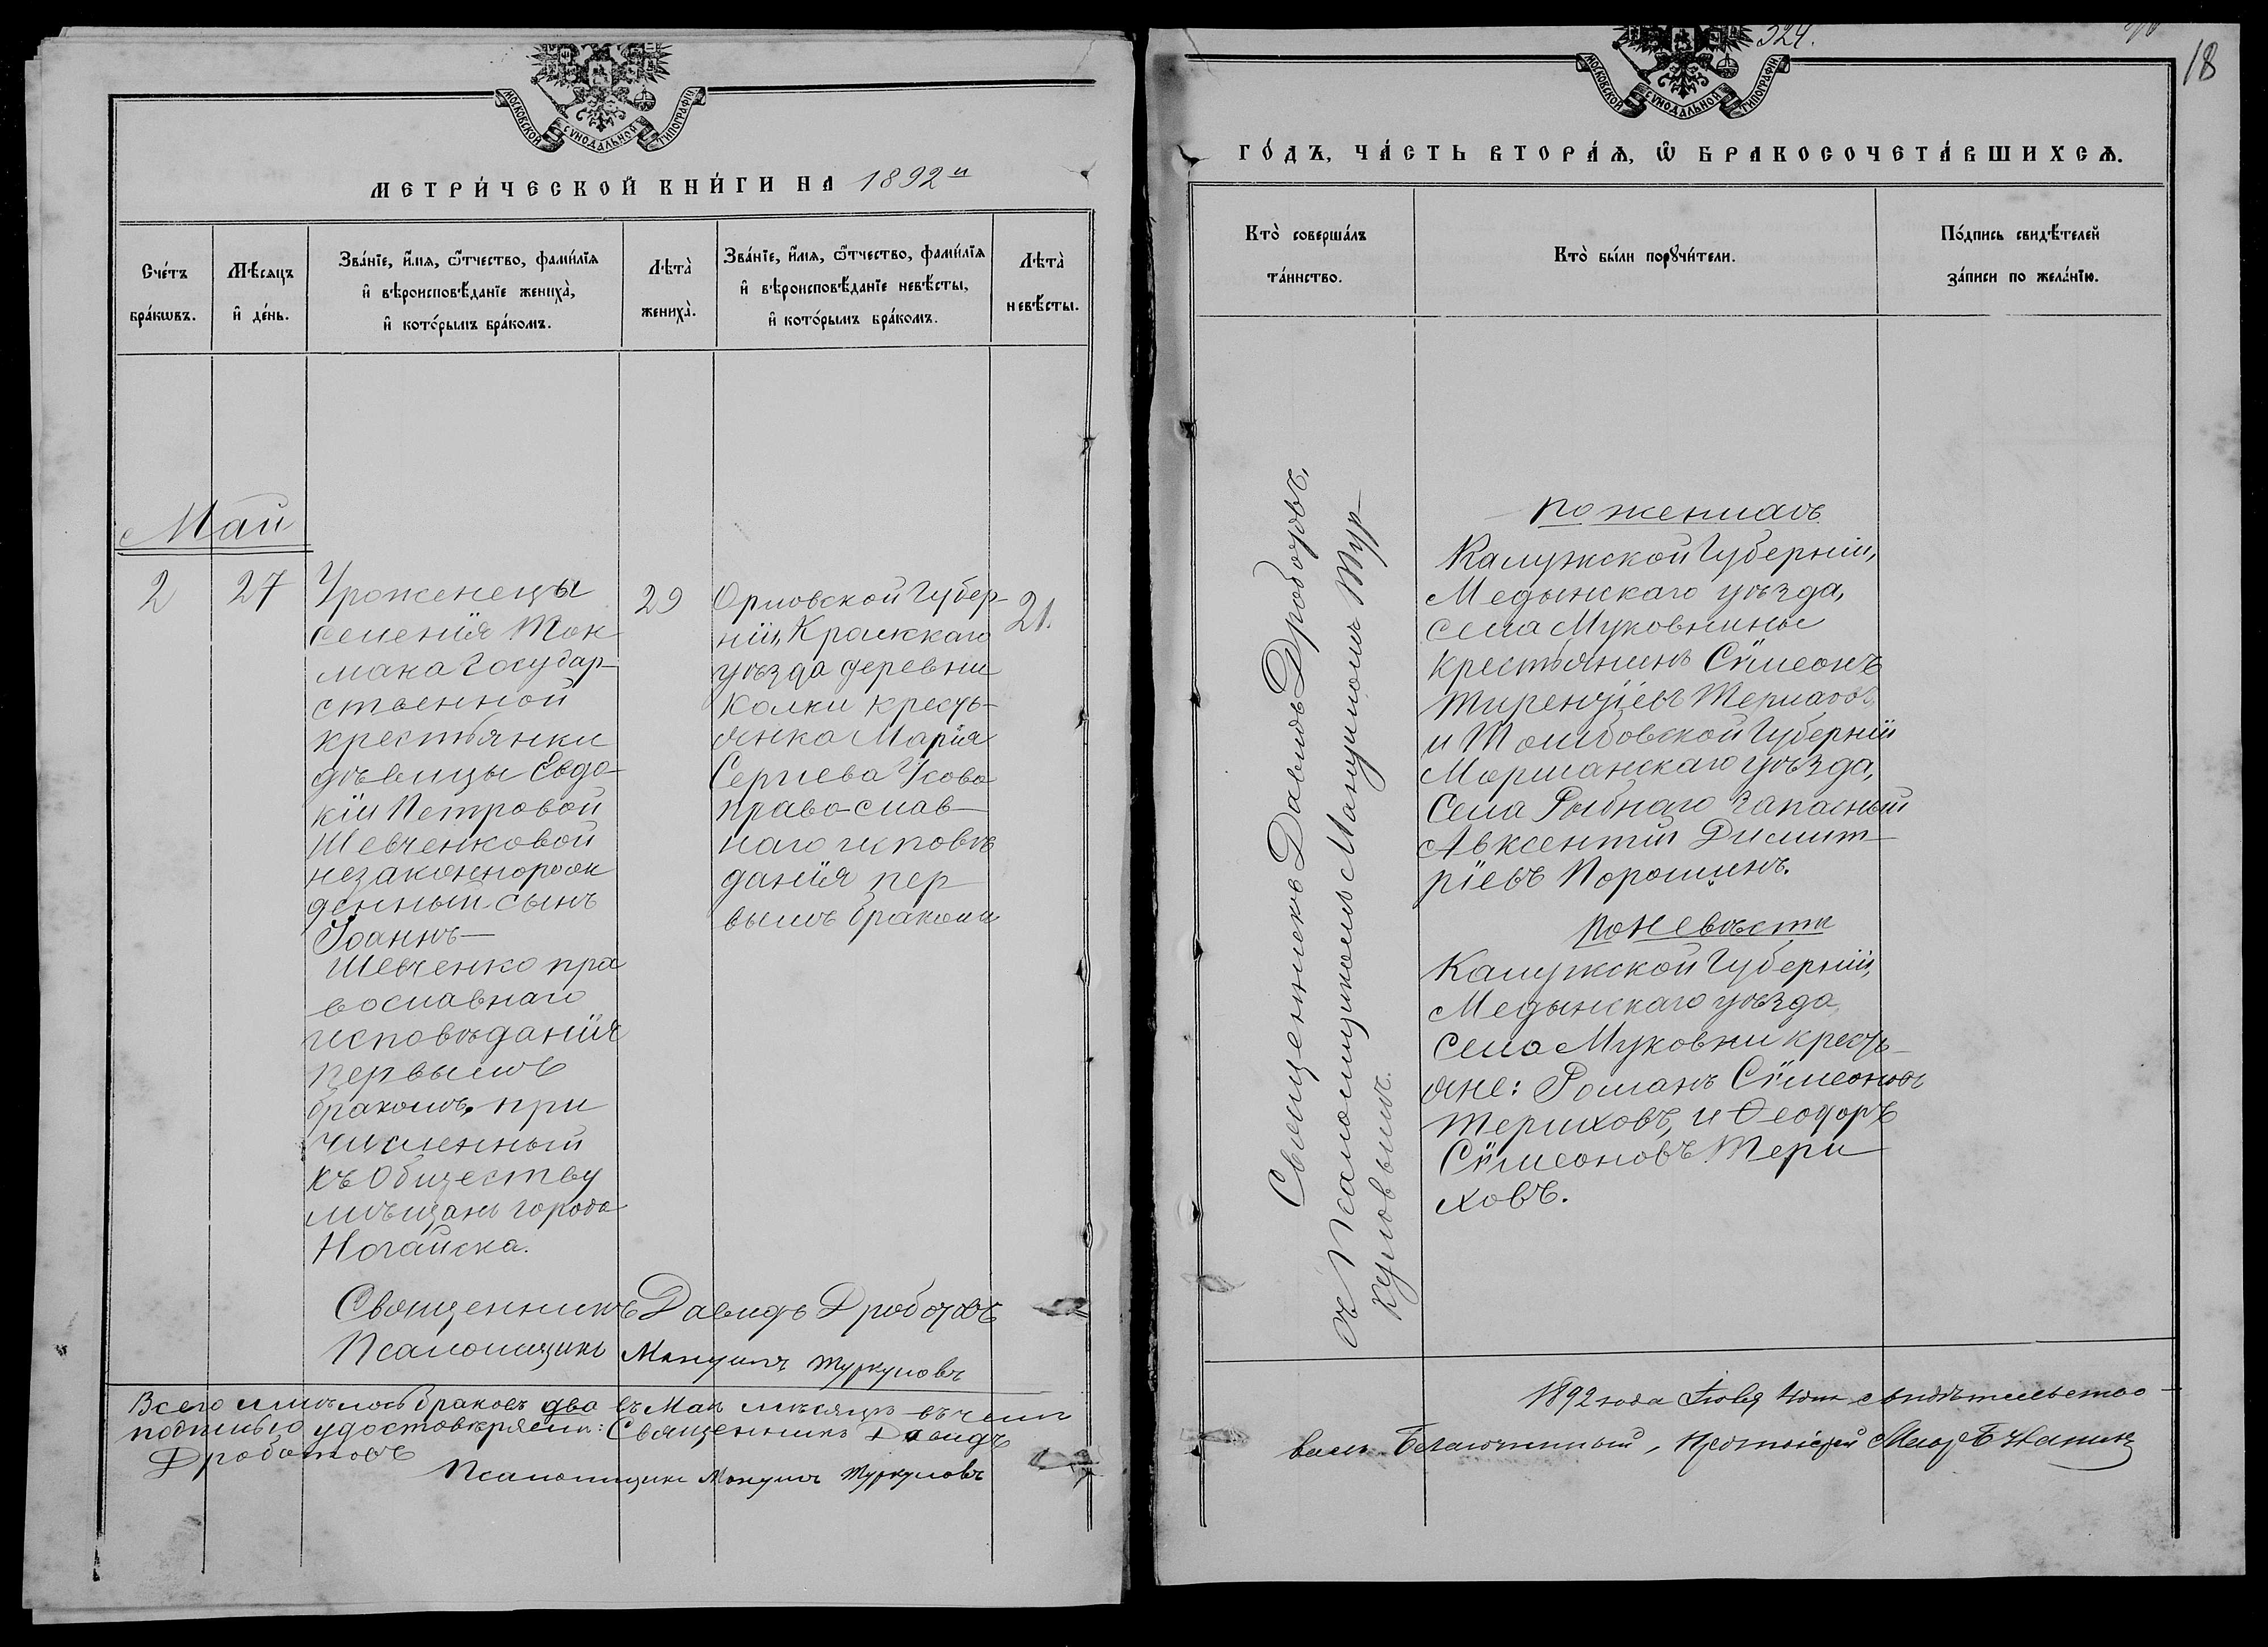 МОСКОВСКОЙ СУНОДАЛЬНОЙ ТИПОГРАФІИ
МЕТРИ́ЧЕСКОЙ КНИ́ГИ НА 1892 й
Сче́тъ бра́кѡвъ.
Мѣ́сяцъ и҆ де́нь.
Зва́нїе, и҆́мя, ѻ҆́тчество, фами́лїя
и҆ вѣроисповѣ́данїе жениха̀,
и҆ кото́рымъ бра́комъ.
Лѣта̀ жениха̀.
Зва́нїе, и҆́мя, ѻ҆́тчество, фами́лїя
и҆ вѣроисповѣ́данїе невѣ́сты,
и҆ кото́рымъ бра́комъ.
Лѣта̀ невѣ́сты.
Май
2
27
Уроженецы
селенія Ток
мака Государ
ственной
крестьянки
дѣвицы Евдо
кіи Петровой
Шевченковой
незаконнорож
денный сынъ
Іоаннъ
Шевченко пра
вославнаго
исповѣданія
первымъ
бракомъ, при
численный
къ Обществу
мѣщанъ города
Ногайска.
29
Орловской Губер-
ніи, Кромскаго
уѣзда деревни
Колки кресть-
янка Марія
Сергіева Усова
православ-
наго исповѣ
данія пер
вымъ бракомъ
21.
Священникъ Давидъ Дроботовъ
Псаломщикъ Мануилъ Туркуловъ
Всего имѣлось браковъ два въ Маѣ мѣсяцѣ въ чемъ
подписью удостовѣряемъ: Священникъ Давидъ
Дроботовъ
Псаломщикъ Мануилъ Туркуловъ
324.
18
МОСКОВСКОЙ СУНОДАЛЬНОЙ ТИПОГРАФІИ
ГО́ДЪ, ЧА́СТЬ ВТОРА́Я, Ѡ҆ БРАКОСОЧЕТА́ВШИХСЯ.
Кто̀ соверша́лъ
та́инство.
Кто̀ бы́ли порꙋчи́тели.
По́дпись свидѣ́телей
за́писи по жела́нїю.
Священникъ Давидъ Дроботовъ,
съ Псаломщикомъ Мануиломъ Тур-
куловымъ.
по женихѣ
Калужской Губерніи,
Медынскаго уѣзда,
села Муковнины
крестьянинъ Сѵмеонъ
Териховъ
и Тамбовской Губерніи
Моршанскаго уѣзда,
Села Рыбнаго Запасный
Авксентій Димит-
ріевъ Порошинъ.
по невѣстѣ
Калужской Губерніи,
Медынскаго уѣзда,
Села Муковни кресть-
яне: Романъ Сѵмеоновъ
Териховъ, и Ѳеодоръ
Сѵмеоновъ Тери
ховъ.
1892 года Іюля свидѣтельство-
валъ Благочинный, Протоіерей